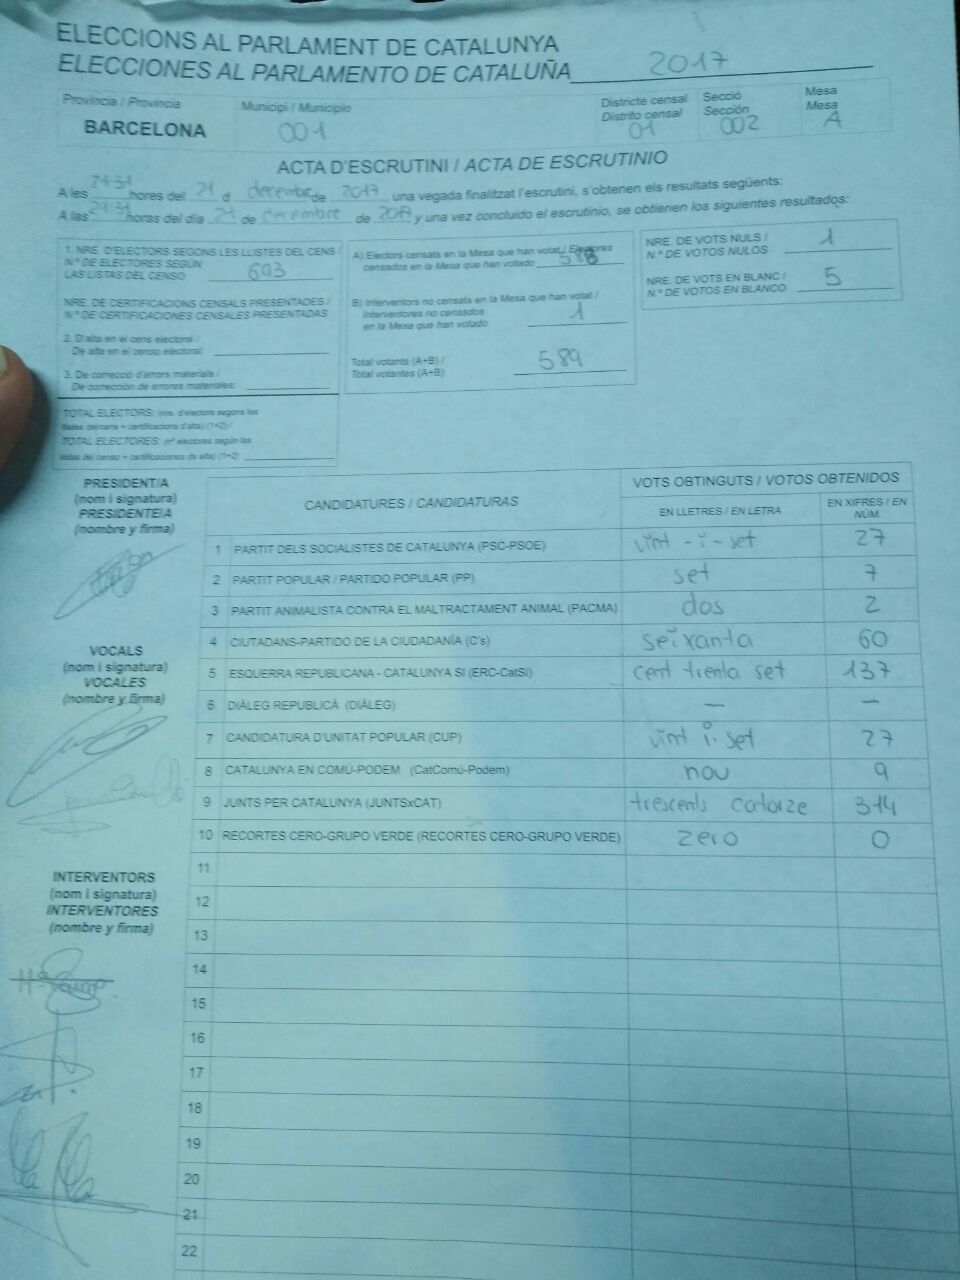 ELECCIONS AL PARLAMENT DE CATALUNYA
ELECCIONES AL PARLAMENTO DE CATALUÑA 2017
Província / Provincia
BARCELONA
Municipi / Municipio
001
Districte censal
Distrito censal
01
Secció
Sección
002
Mesa
Mesa
A
ACTA D'ESCRUTINI / ACTA DE ESCRUTINIO
A les 21:31 hores del 21 d decembre de 2017 una vegada finalitzat l'escrutini, s'obtenen els resultats següents:
A las 21:31 horas del día 21 de decembre de 2017 y una vez concluido el escrutinio, se obtienen los siguientes resultados:
1. NRE. D'ELECTORS SEGONS LES LLISTES DEL CENS /
N.º DE ELECTORES SEGÚN
LAS LISTAS DEL CENSO 693
NRE. DE CERTIFICACIONS CENSALS PRESENTADES /
N.º DE CERTIFICACIONES CENSALES PRESENTADAS
2. D'alta en el cens electoral /
De alta en el censo electoral:
3. De correcció d'errors materials /
De corrección de errores materiales:
TOTAL ELECTORS: (nre. d'electors segons les
llistes del cens + certificacions d'alta) (1+2) /
TOTAL ELECTORES: (nº electores según las
listas del censo + certificaciones de alta) (1+2)
A) Electors censats en la Mesa que han votat / Electores
censados en la Mesa que han votado 588
B) Interventors no censats en la Mesa que han votat /
Interventores no censados
en la Mesa que han votado 1
Total votants (A+B) /
Total votantes (A+B) 589
NRE. DE VOTS NULS /
N.º DE VOTOS NULOS 1
NRE. DE VOTS EN BLANC /
N.º DE VOTOS EN BLANCO 5
PRESIDENT/A
(nom i signatura)
PRESIDENTE/A
(nombre y firma)
VOCALS
(nom i signatura)
VOCALES
(nombre y firma)
INTERVENTORS
(nom i signatura)
INTERVENTORES
(nombre y firma)
CANDIDATURES / CANDIDATURAS
VOTS OBTINGUTS / VOTOS OBTENIDOS
EN LLETRES / EN LETRA
EN XIFRES / EN NÚM.
1 PARTIT DELS SOCIALISTES DE CATALUNYA (PSC-PSOE) vint-i-set 27
2 PARTIT POPULAR / PARTIDO POPULAR (PP) set 7
3 PARTIT ANIMALISTA CONTRA EL MALTRACTAMENT ANIMAL (PACMA) dos 2
4 CIUTADANS-PARTIDO DE LA CIUDADANÍA (C's) seixanta 60
5 ESQUERRA REPUBLICANA - CATALUNYA SÍ (ERC-CatSí) cent trenta set 137
6 DIÀLEG REPUBLICÀ (DIÀLEG) — —
7 CANDIDATURA D'UNITAT POPULAR (CUP) vint i set 27
8 CATALUNYA EN COMÚ-PODEM (CatComú-Podem) nou 9
9 JUNTS PER CATALUNYA (JUNTSxCAT) trescents catorze 314
10 RECORTES CERO-GRUPO VERDE (RECORTES CERO-GRUPO VERDE) zero 0
11
12
13
14
15
16
17
18
19
20
21
22